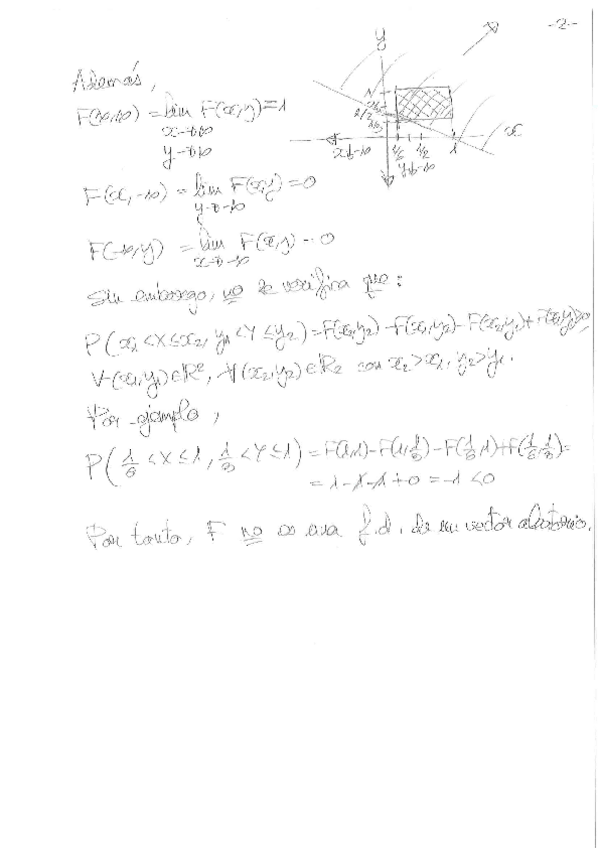 -2-
Además,
F(+∞,+∞) = lim F(x,y) = 1
x→+∞
y→+∞
F(x,-∞) = lim F(x,y) = 0
y→-∞
F(-∞,y) = lim F(x,y) = 0
x→-∞
Sin embargo, no se verifica que:
P(x₁<X≤x₂, y₁<Y≤y₂) = F(x₂,y₂) - F(x₁,y₂) - F(x₂,y₁) + F(x₁,y₁) ≥ 0,
∀(x₁,y₁)∈R², ∀(x₂,y₂)∈R² con x₂>x₁, y₂>y₁.
Por ejemplo,
P(1/6<X≤1, 1/6<Y≤1) = F(1,1) - F(1,1/6) - F(1/6,1) + F(1/6,1/6) =
= 1-1-1+0 = -1 <0
Por tanto, F no es una f.d. de un vector aleatorio.
y
x
1
1/2
1
x→-∞
y→-∞